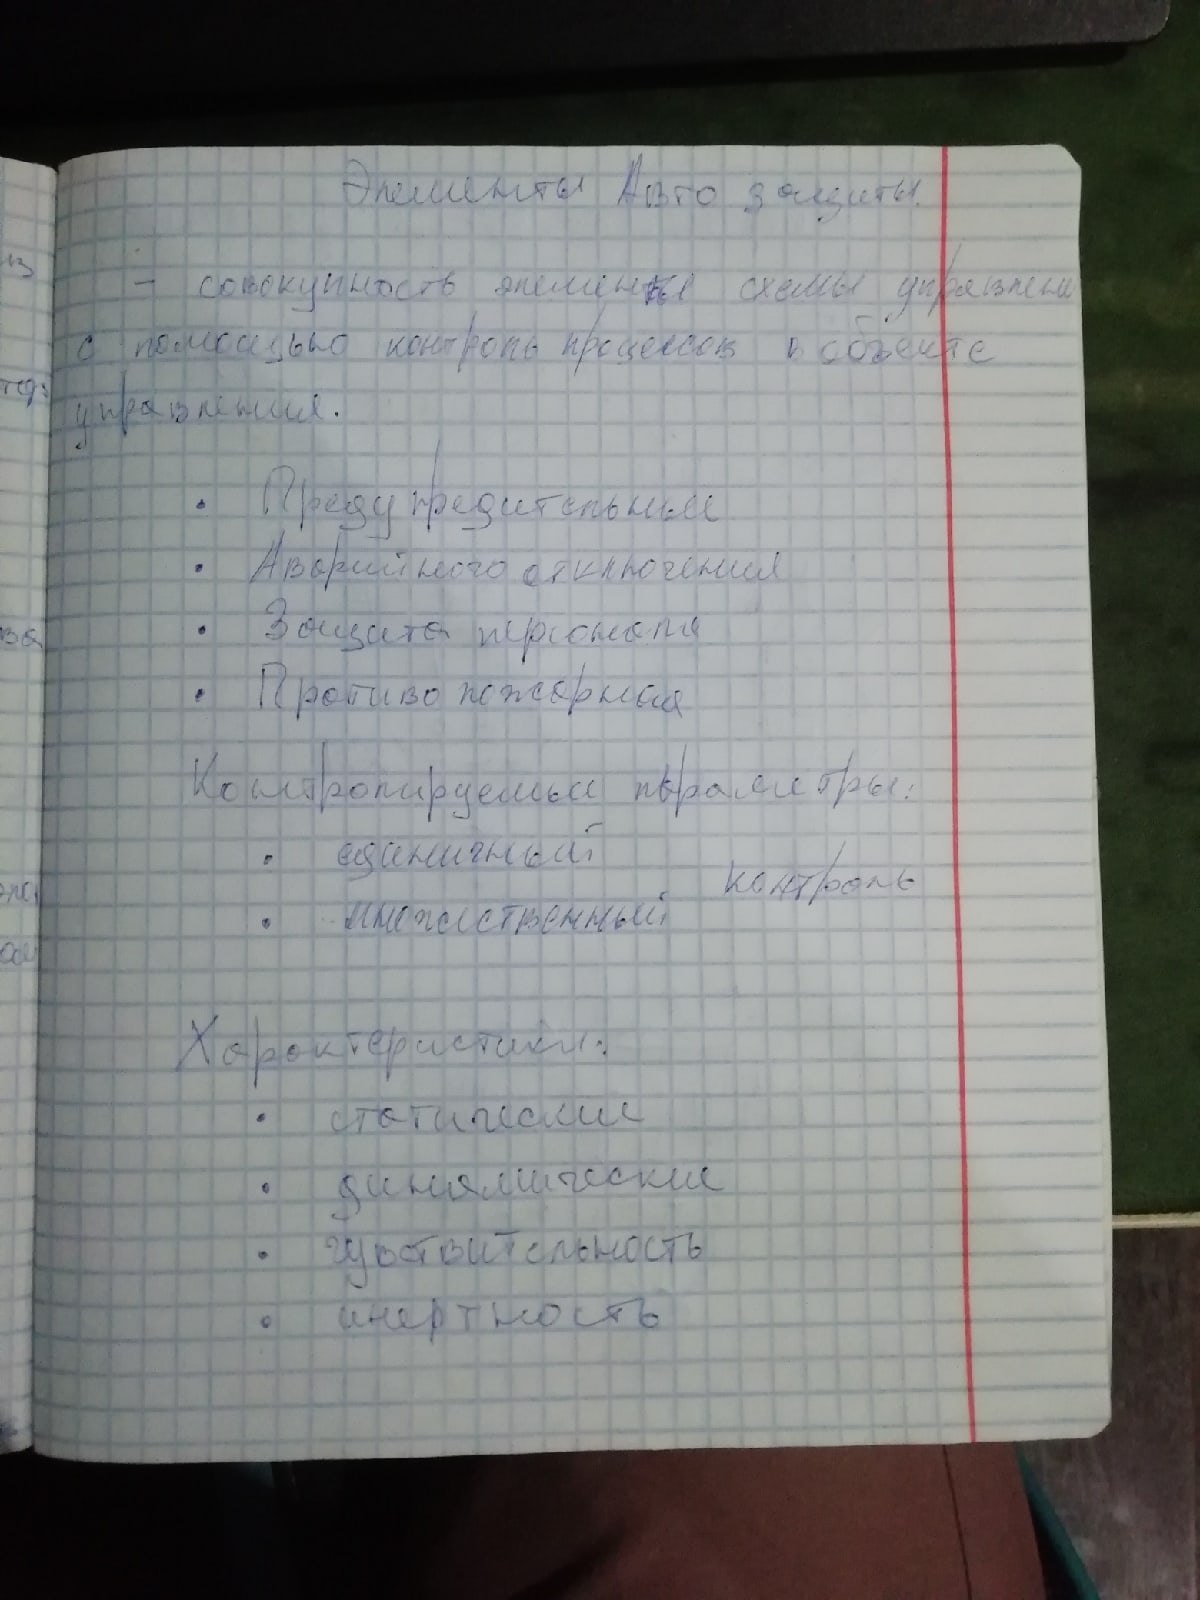 Элементы Авто защиты.
- совокупность элементы схемы управлени
с помощью контроль процессов в объекте
управления.
• Предупредительные
• Аварийного отключения
• Защита персонала
• Противо пожарная
Контролируемые параметры:
• единичный
контроль
• множественный
Характеристики:
• статические
• динамические
• чувствительность
• инертность